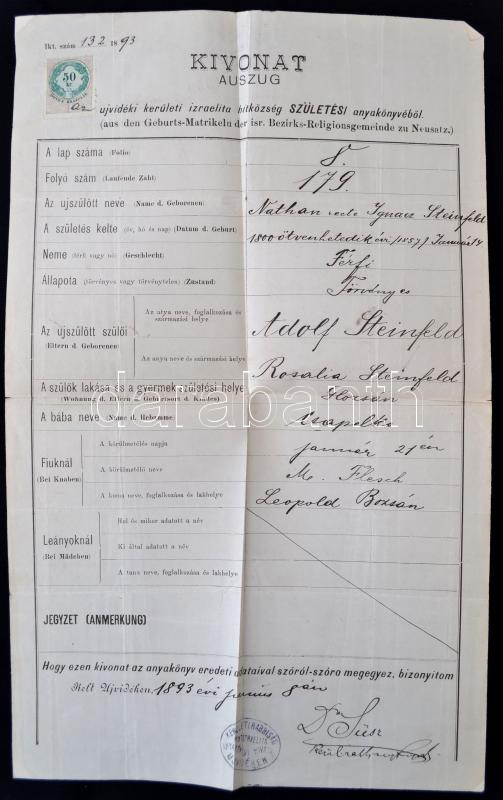 Ikt. szám 132 1893
KIVONAT
AUSZUG
50
Az ujvidéki kerületi izraelita hitközség SZÜLETÉSI anyakönyvéből.
(aus den Geburts-Matrikeln der isr. Bezirks-Religionsgemeinde zu Neusatz.)
A lap száma (Folio) 8.
Folyó szám (Laufende Zahl) 179.
Az ujszülött neve (Name d. Geborenen) Nathan recte Ignacz Steinfeld
A születés kelte (év, hó és nap) (Datum d. Geburt) 1800 ötvenhetedik évi (1857) Januus 14
Neme (férfi vagy nő) (Geschlecht) Férfi
Állapota (törvényes vagy törvénytelen) (Zustand) Törvényes
Az ujszülött szülői
(Eltern d. Geborenen)
Az atya neve, foglalkozása és
származási helye
Adolf Steinfeld
Az anya neve és származási helye
Rosalia Steinfeld
A szülők lakása és a gyermek születési helye
(Wohnung d. Eltern u. Geburtsort d. Kindes)
A bába neve (Name d. Hebamme)
Fiuknál
(Bei Knaben)
A körülmetélés napja január 21én
A körülmetélő neve M. Flesch
A koma neve, foglalkozása és lakhelye Leopold Bozsán
Leányoknál
(Bei Mädchen)
Hol és mikor adatott a név
Ki által adatott a név
A tanu neve, foglalkozása és lakhelye
JEGYZET (ANMERKUNG)
Hogy ezen kivonat az anyakönyv eredeti adataival szóról-szóra megegyez, bizonyitom
Kelt Ujvidéken, 1893 évi junius 8án
Dr Süsz
darabanth